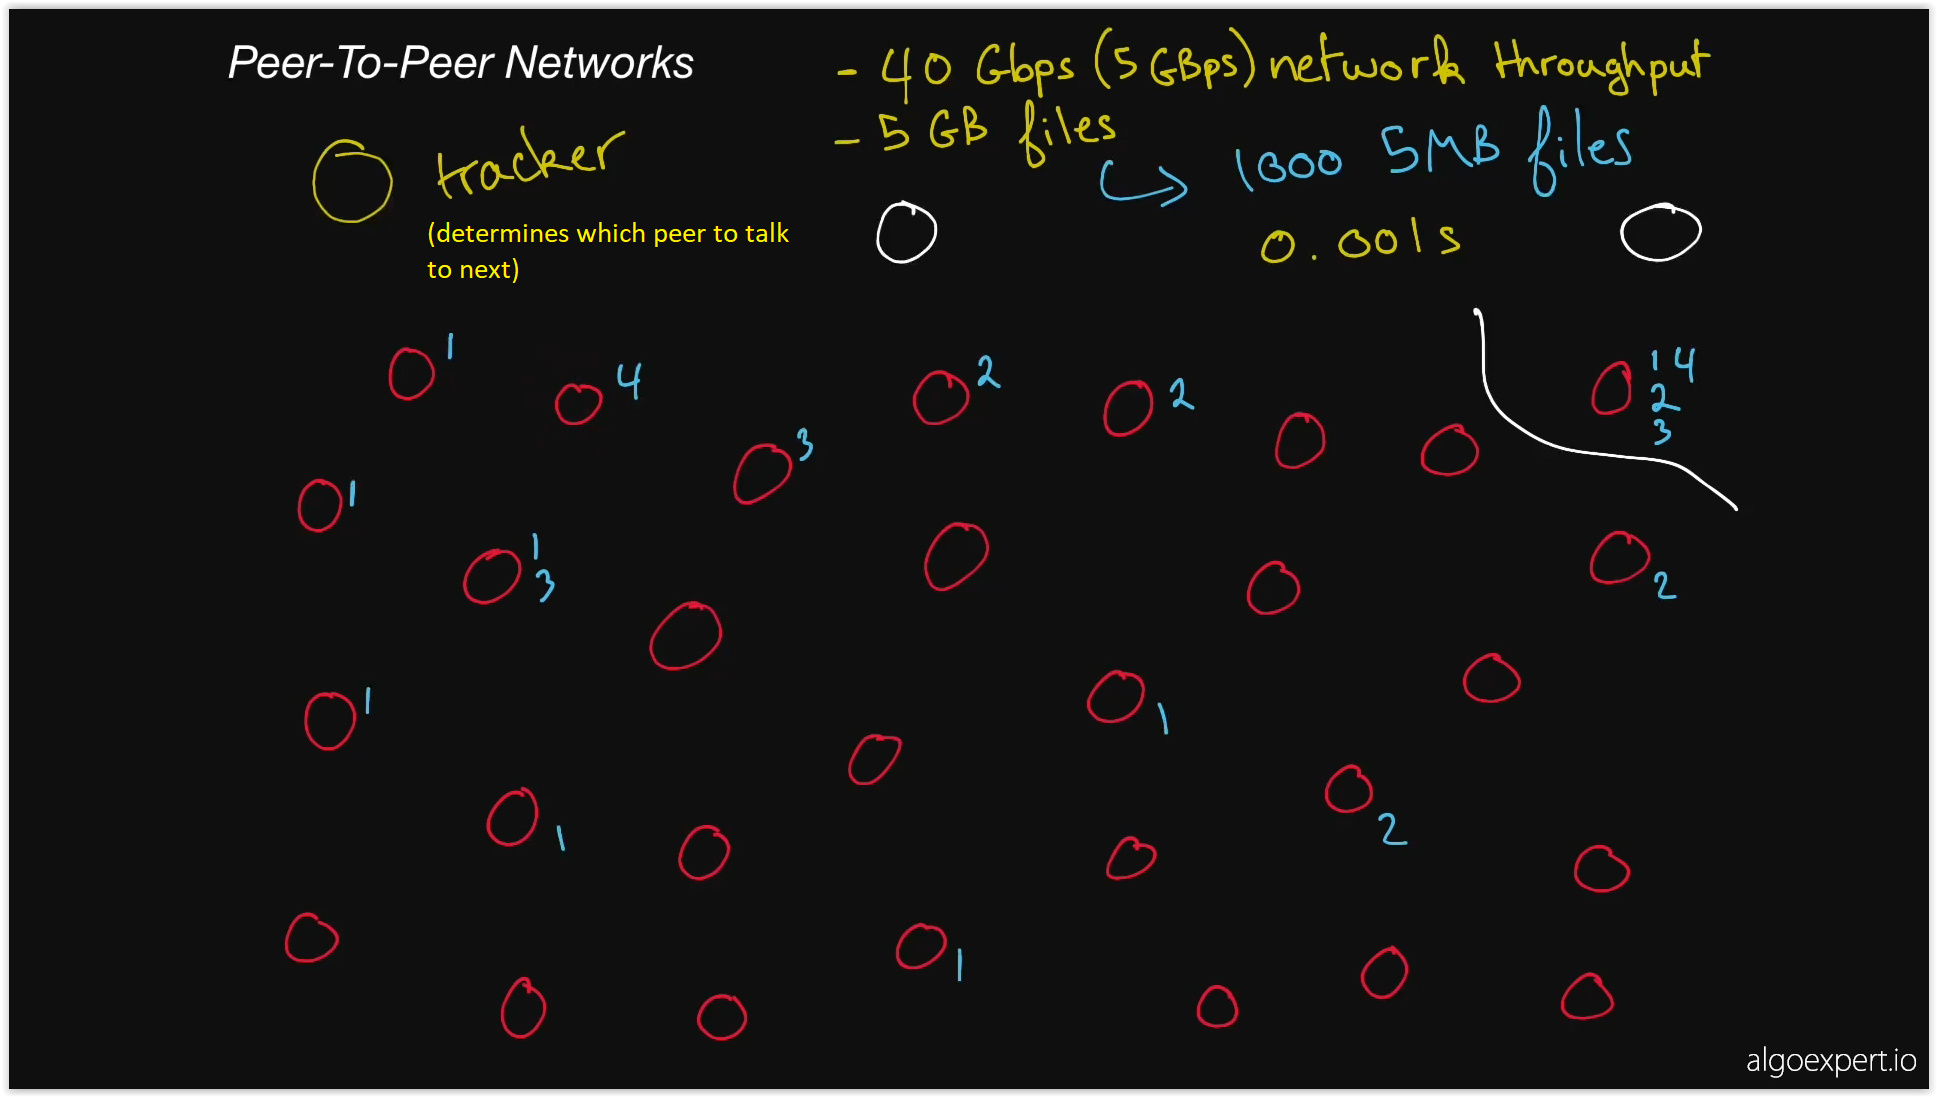 Peer-To-Peer Networks
- 40 Gbps (5 GBps) network throughput
- 5 GB files
1000 5MB files
tracker
(determines which peer to talk
to next)
0.001s
1
4
2
2
1 4
2
3
3
1
1
3
2
1
1
2
1
1
algoexpert.io